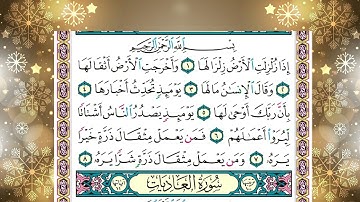 بِسْمِ ٱللَّهِ ٱلرَّحْمَٰنِ ٱلرَّحِيمِ
إِذَا زُلْزِلَتِ ٱلْأَرْضُ زِلْزَالَهَا ١ وَأَخْرَجَتِ ٱلْأَرْضُ أَثْقَالَهَا
٢ وَقَالَ ٱلْإِنسَٰنُ مَا لَهَا ٣ يَوْمَئِذٍ تُحَدِّثُ أَخْبَارَهَا ٤
بِأَنَّ رَبَّكَ أَوْحَىٰ لَهَا ٥ يَوْمَئِذٍ يَصْدُرُ ٱلنَّاسُ أَشْتَاتًا
لِّيُرَوْا۟ أَعْمَٰلَهُمْ ٦ فَمَن يَعْمَلْ مِثْقَالَ ذَرَّةٍ خَيْرًا
يَرَهُۥ ٧ وَمَن يَعْمَلْ مِثْقَالَ ذَرَّةٍ شَرًّا يَرَهُۥ ٨
سُورَةُ ٱلْعَادِيَاتِ